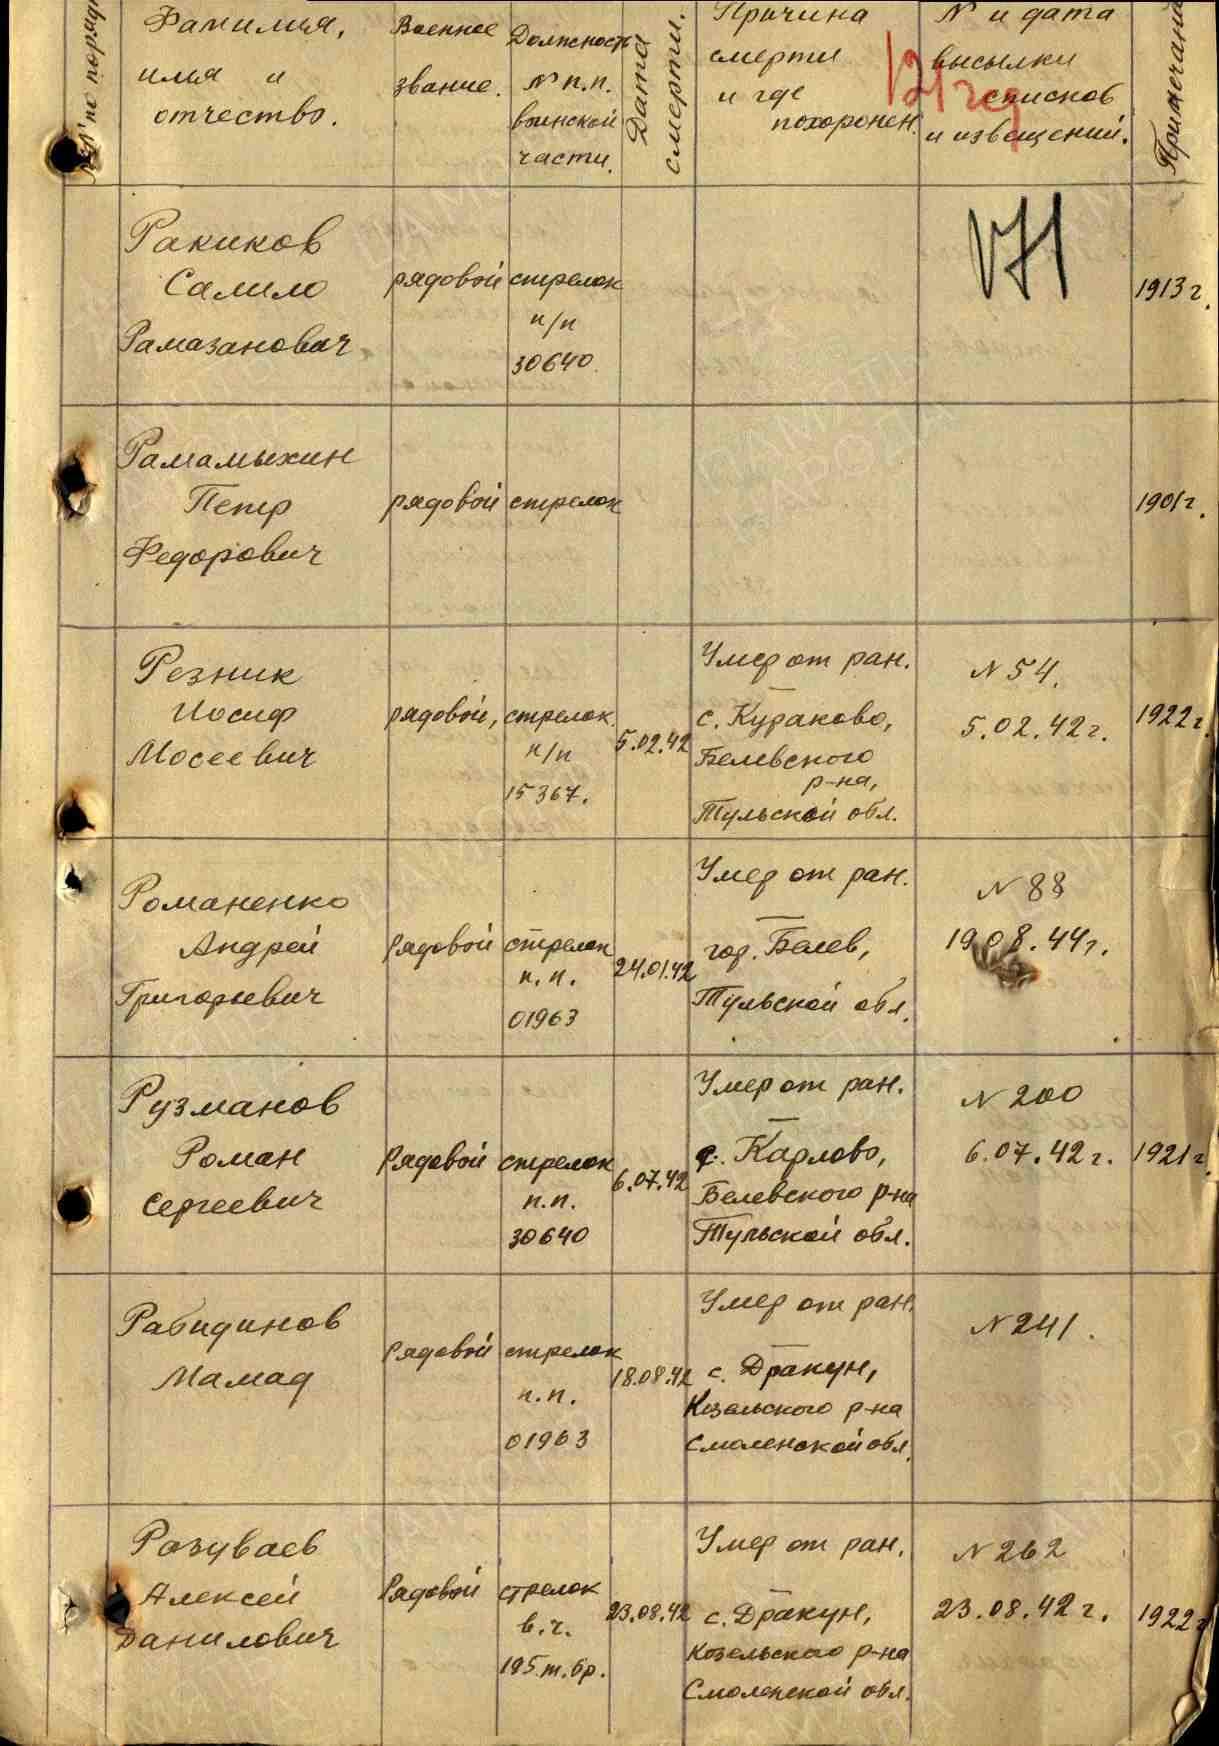 Фамилия,
имя и
отчество.
Военное
звание.
Должность
№ п.п.
воинской
части.
Дата
смерти.
Причина
смерти
и где
похоронен.
№ и дата
высылки
списков
и извещений.
Ракиков
Салило
Рамазанович
рядовой
стрелок
п/п
30640
1913 г.
Рамамыхин
Петр
Федорович
рядовой
стрелок
1901 г.
Резник
Иосиф
Мосеевич
рядовой,
стрелок.
п/п
15367.
5.02.42
Умер от ран.
с. Кураково,
Белевского
р-на,
Тульской обл.
№ 54.
5.02.42 г.
1922 г.
Романенко
Андрей
Григорьевич
Рядовой
стрелок
п.п.
01963
24.01.42
Умер от ран.
гор. Белев,
Тульской обл.
№ 88
19.08.44 г.
Рузманов
Роман
Сергеевич
Рядовой
стрелок
п.п.
30640
6.07.42
Умер от ран.
д. Карлово,
Белевского р-на
Тульской обл.
№ 200
6.07.42 г.
1921 г.
Рабидинов
Мамад
Рядовой
стрелок
п.п.
01963
18.08.42
Умер от ран.
с. Дракун,
Козельского р-на
Смоленской обл.
№ 241.
Разуваев
Алексей
Данилович
Рядовой
стрелок
в.ч.
195 т. бр.
23.08.42
Умер от ран.
с. Дракун,
Козельского р-на
Смоленской обл.
№ 262
23.08.42 г.
1922 г